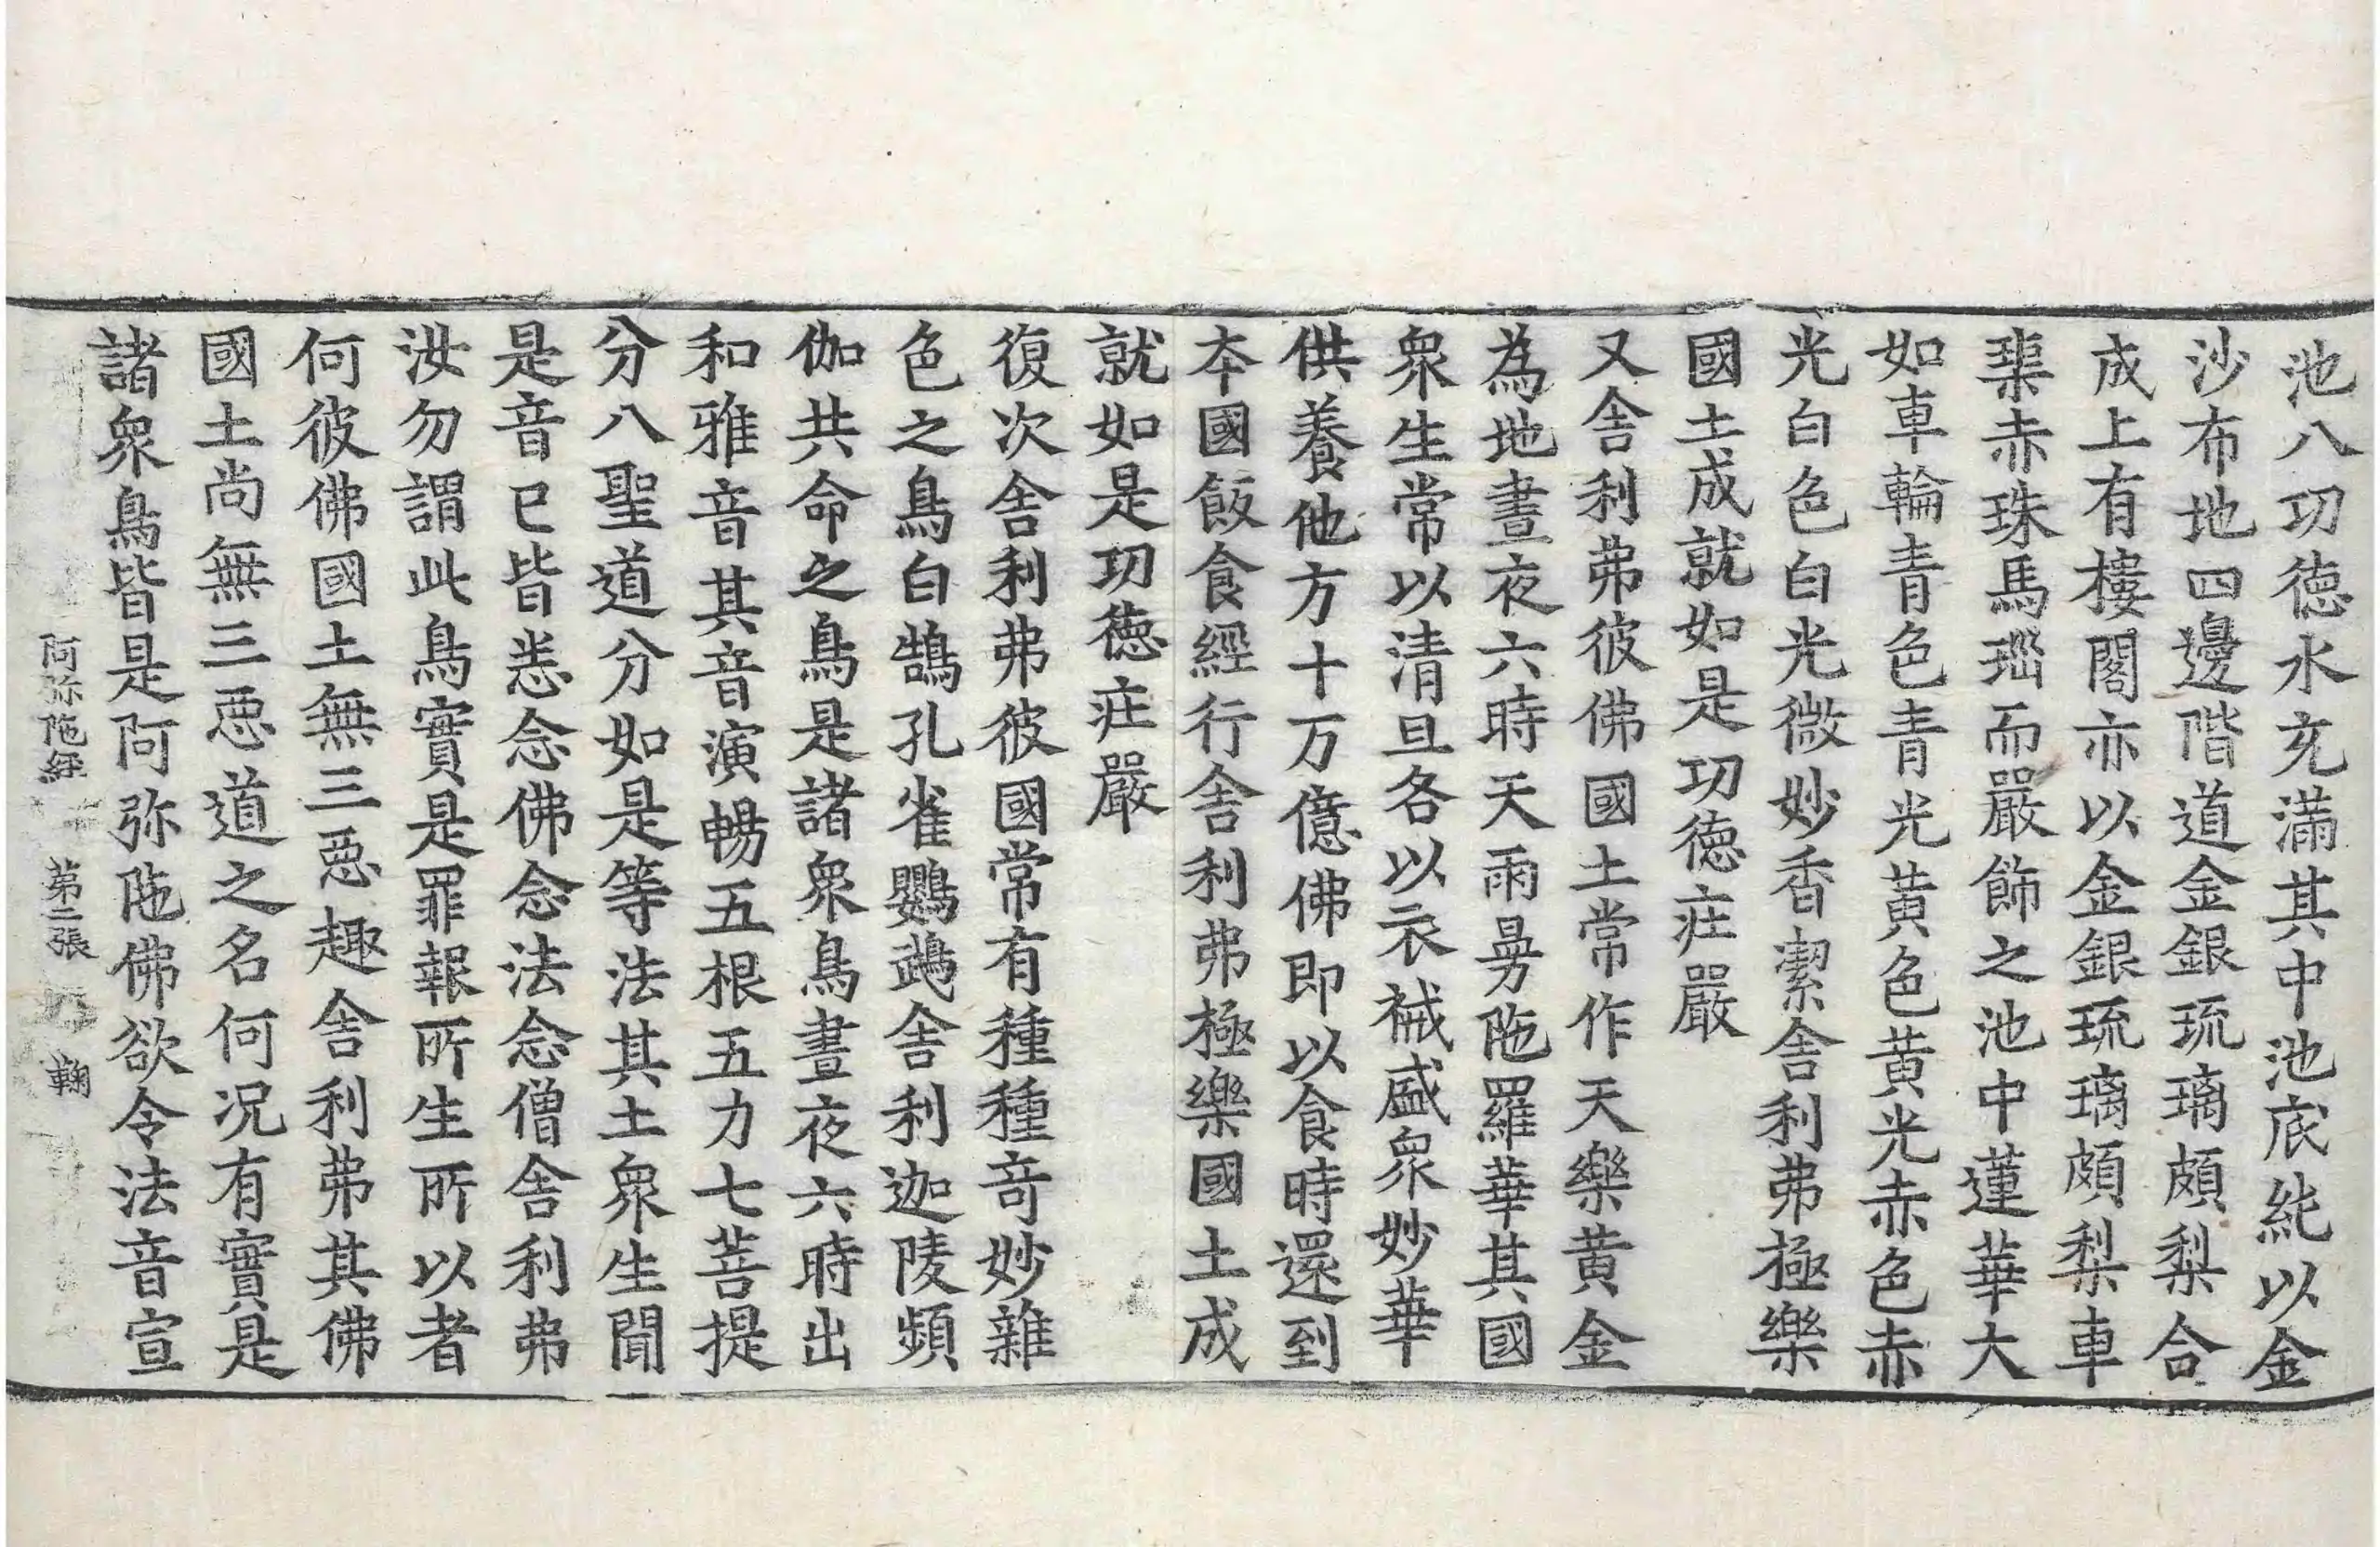 池八功德水充滿其中池底純以金
沙布地四邊階道金銀琉璃頗梨合
成上有樓閣亦以金銀琉璃頗梨車
璖赤珠馬瑙而嚴飾之池中蓮華大
如車輪青色青光黃色黃光赤色赤
光白色白光微妙香潔舍利弗極樂
國土成就如是功德莊嚴
又舍利弗彼佛國土常作天樂黃金
為地晝夜六時天雨曼陁羅華其國
衆生常以清旦各以衣裓盛衆妙華
供養他方十万億佛即以食時還到
本國飯食經行舍利弗極樂國土成
就如是功德莊嚴
復次舍利弗彼國常有種種竒妙雜
色之鳥白鵠孔雀鸚鵡舍利迦陵頻
伽共命之鳥是諸衆鳥晝夜六時出
和雅音其音演暢五根五力七菩提
分八聖道分如是等法其土衆生聞
是音已皆悉念佛念法念僧舍利弗
汝勿謂此鳥實是罪報所生所以者
何彼佛國土無三惡趣舍利弗其佛
國土尚無三惡道之名何況有實是
諸衆鳥皆是阿弥陁佛欲令法音宣
阿弥陁經 第二張 鞠